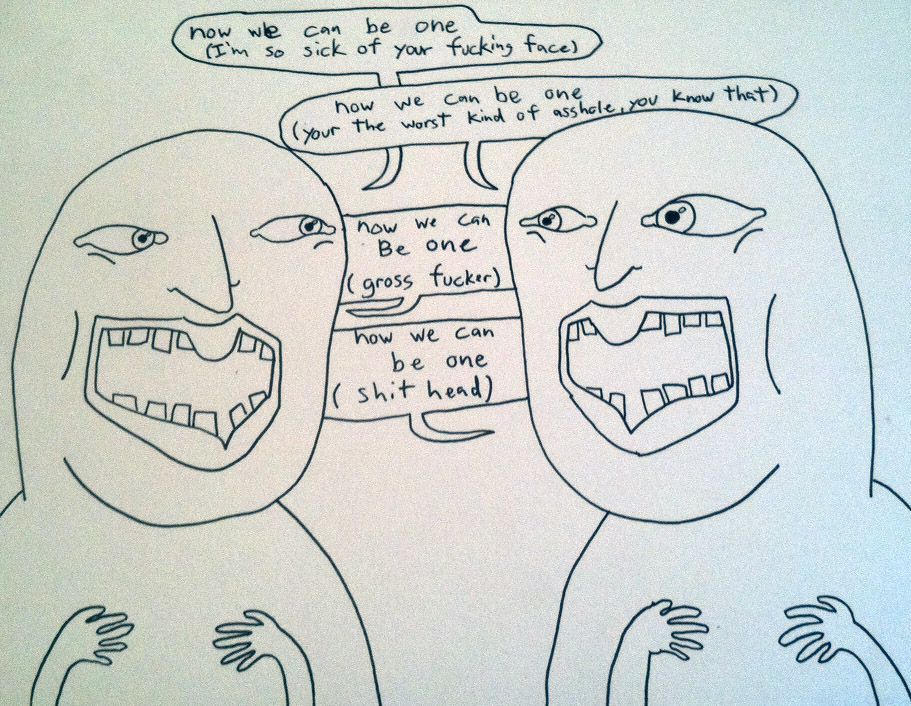 now we can be one
(I'm so sick of your fucking face)
now we can be one
(your the worst kind of asshole, you know that)
now we can
Be one
(gross fucker)
now we can
be one
(shit head)